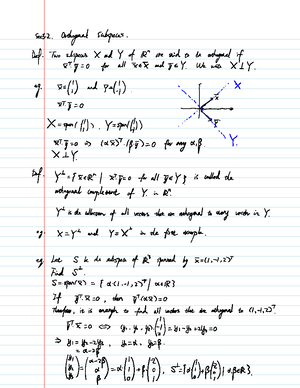 Sec 5.2. Orthogonal Subspaces.
Def. Two subspaces X and Y of ℝⁿ are said to be orthogonal if
x̄ᵀȳ = 0 for all x̄∈X and ȳ∈Y. We write X⊥Y.
eg. x̄ = (1 1) and ȳ = (1 -1)
x̄ᵀȳ = 0
X = span{(1 1)}, Y = span{(1 -1)}
x̄ᵀȳ = 0 ⇒ (αx̄)ᵀ(βȳ) = 0 for any α, β.
X⊥Y.
X
x̄
ȳ
Y.
Def. Y^⊥ = { x̄∈ℝⁿ | x̄ᵀȳ = 0 for all ȳ∈Y } is called the
orthogonal complement of Y in ℝⁿ.
Y^⊥ is the collection of all vectors that are orthogonal to every vector in Y.
eg. X = Y^⊥ and Y = X^⊥ in the first example.
eg. Let S be the subspace of ℝ³ spanned by x̄ = (1,-1,2)ᵀ
Find S^⊥.
S = span(x̄) = { α(1,-1,2)ᵀ | α∈ℝ }
If ȳᵀx̄ = 0, then ȳᵀ(αx̄) = 0
Therefore, it is enough to find all vectors that are orthogonal to (1,-1,2)ᵀ.
ȳᵀx̄ = 0 ⇔ (y₁ y₂ y₃)(1 -1 2) = y₁ - y₂ + 2y₃ = 0
⇒ y₁ = y₂ - 2y₃, y₂ = α, y₃ = β.
= α - 2β
(y₁ y₂ y₃) = (α-2β α β) = α(1 1 0) + β(-2 0 1), S^⊥ = { α(1 1 0) + β(-2 0 1) | α, β∈ℝ }.